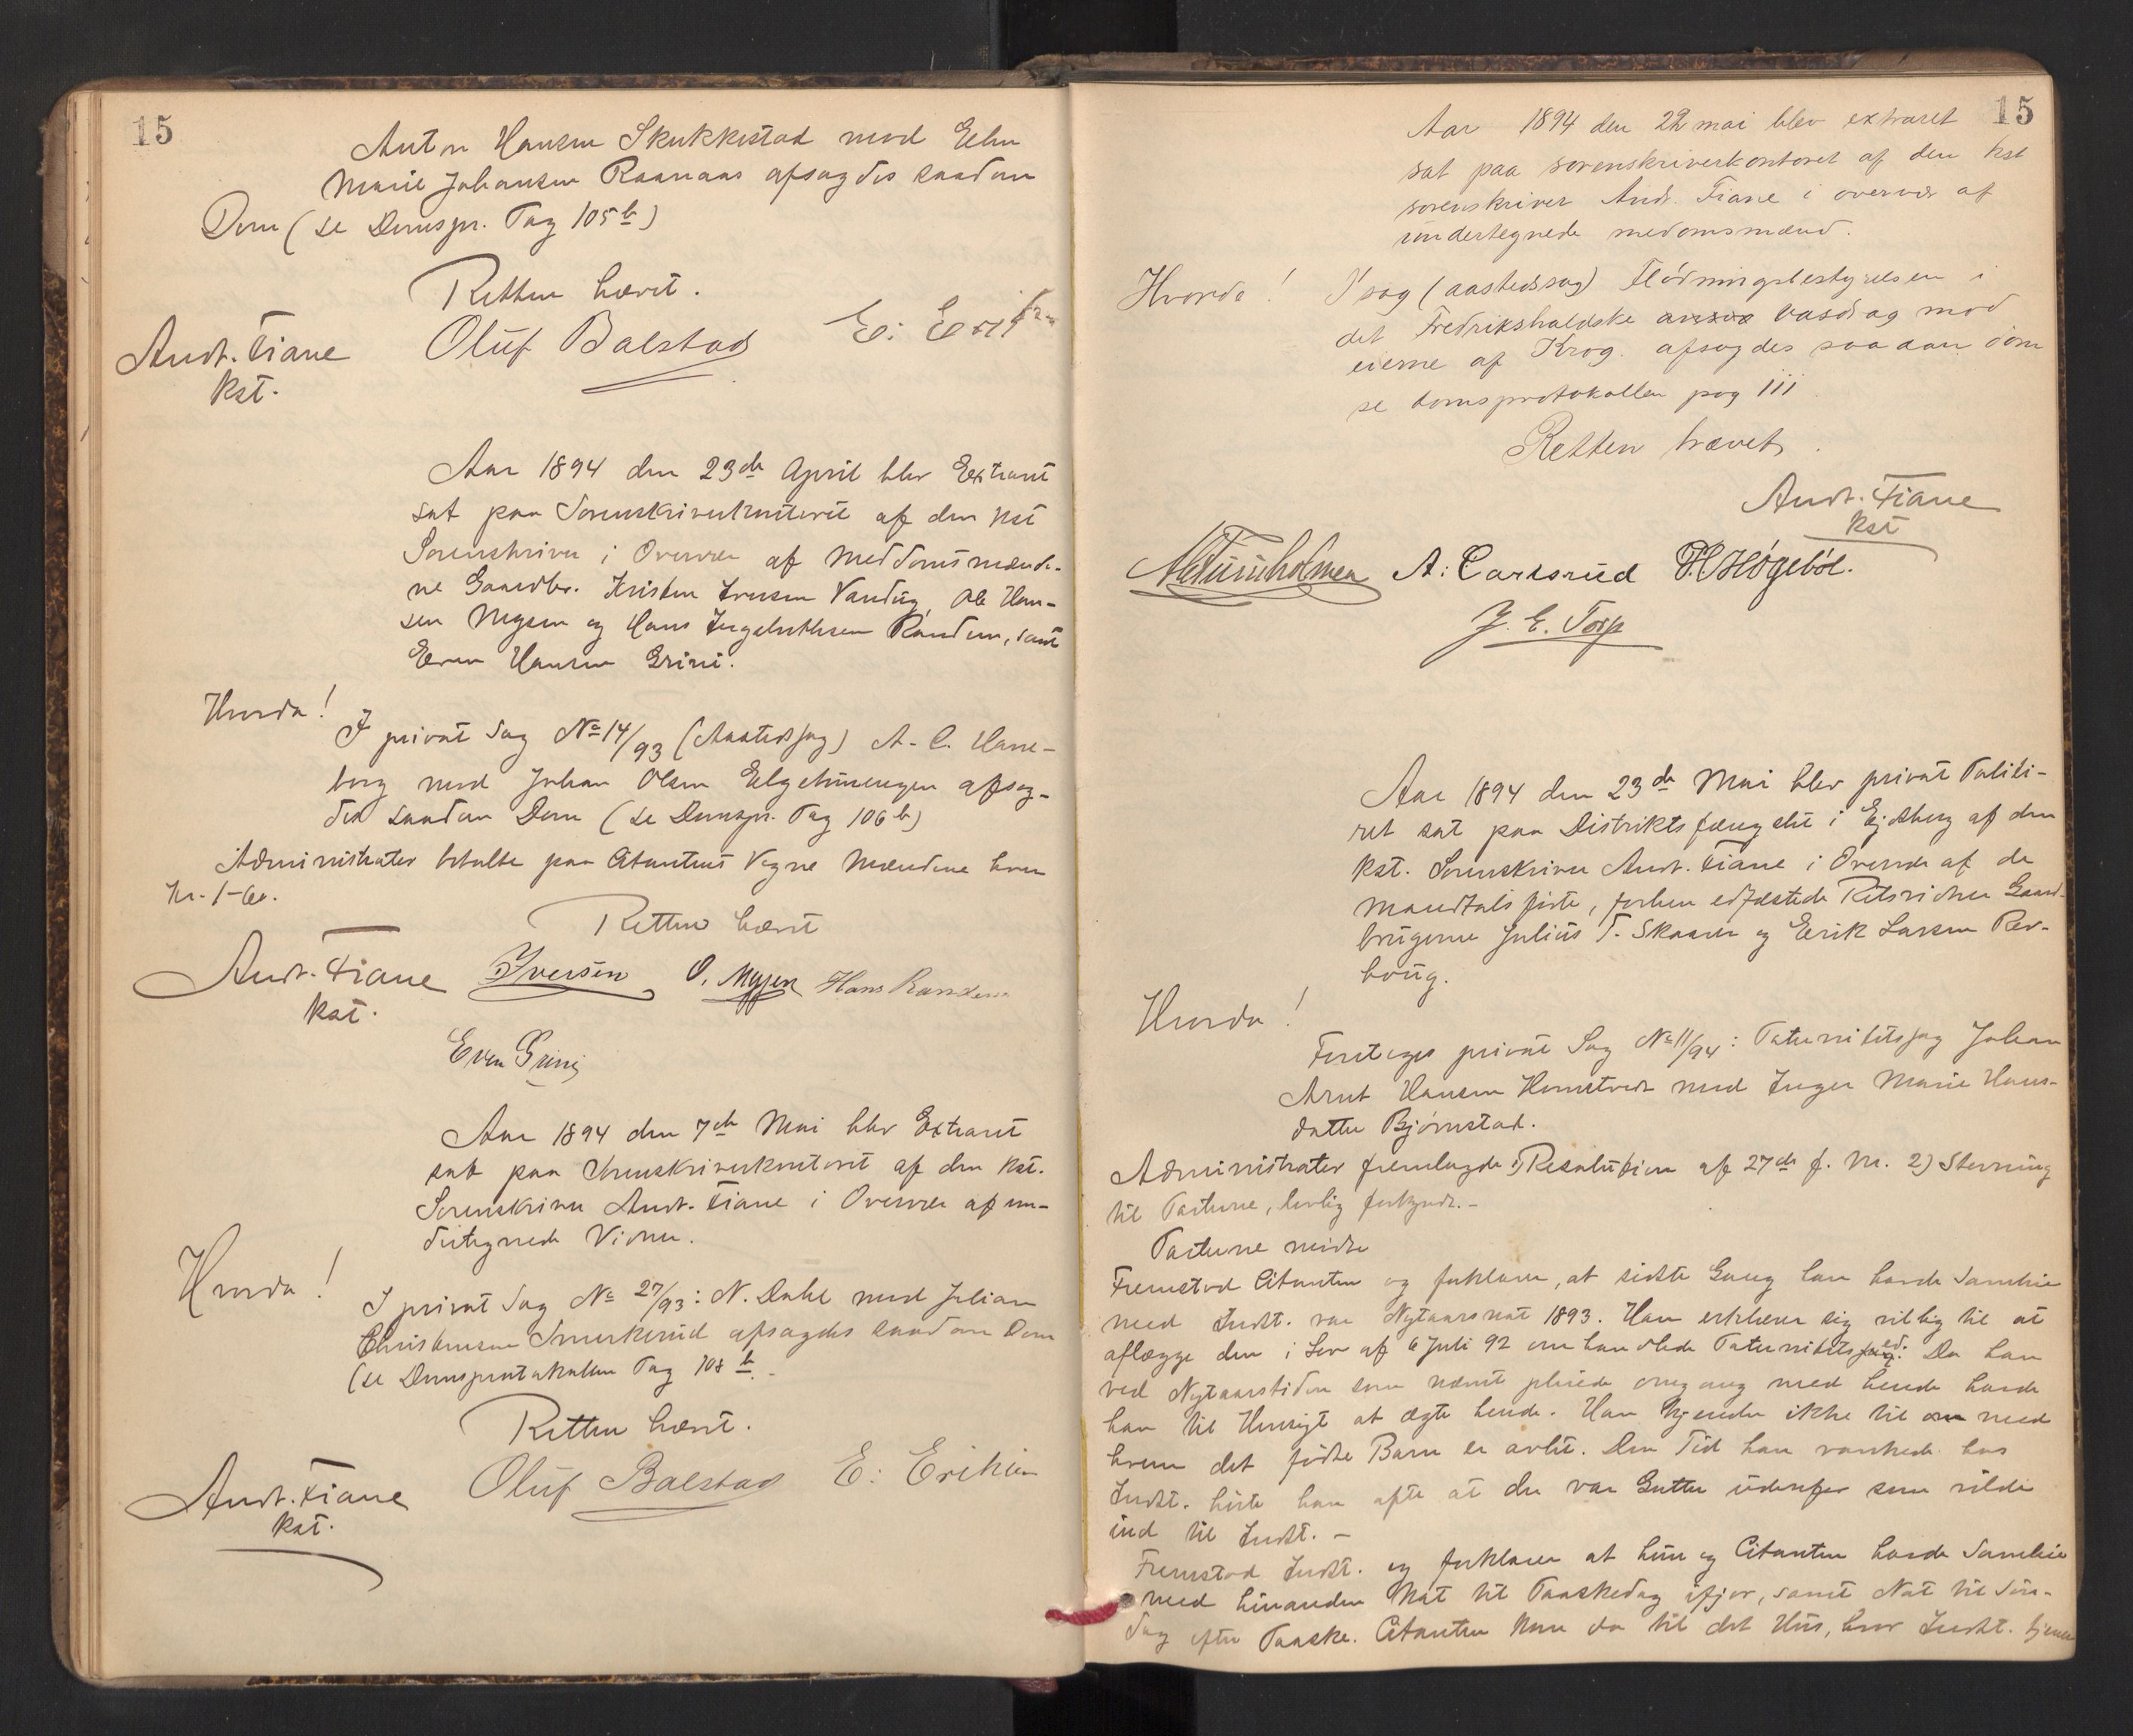 15
Anton Hansen Skukkestad mod Elen
Marie Johansen Raanaas afsagdes saadan
Dom (se Domspr. Pag 105b)
Retten hævet.
Andr. Fiane Oluf Balstad E. Erik
Kst.
Aar 1894 den 23de April blev Extraret
sat paa Sorenskriverkontoret af den Kst
Sorenskriver i Overvær af Meddomsmænde-
ne Gaardbr. Kristen Iversen Vandug, Ole Han-
sen Mysen og Hans Ingebrethsen Randem, samt
Even Hansen Grini.
Hvorda!
I privat Sag No 14/93 (Aastedssag) A. C. Hane-
borg mod Johan Olsen Elgetunengen afsag-
des saadan Dom (se Domspr. Pag 106b)
Administrator betalte paa Citantens Vegne Mændene hver
Kr. 1-60.
Retten hævet
Andr. Fiane Iversen O. Mysen Hans Randem
Kst.
Even Grini
Aar 1894 den 7de Mai blev Extraret
sat paa Sorenskriverkontoret af den Kst.
Sorenskriver Andr. Fiane i Overvær af un-
dertegnede Vidner.
Hvorda!
I privat Sag No 27/93: N. Dahl mod Julian
Christensen Smerkerud afsagdes saadan Dom
(se Domsprotokollen Pag 108b.
Retten hævet.
Andr. Fiane Oluf Balstad E. Eriksen
Kst.
15
Aar 1894 den 22 mai blev extraret
sat paa sorenskriverkontoret af den kst
sorenskriver Andr. Fiane i overvær af
undertegnede meddomsmænd.
Hvorda! I sag (aastedssag) Flödningsbestyrelsen i
det Fredrikshaldske vasdrag mod
eierne af Krog. afsagdes saadan dom
se domsprotokollen pag 111
Retten hævet.
Andr. Fiane
Kst
A: Carlsrud H. Høgebøl.
J. E. Torp
Aar 1894 den 23de Mai blev privat Politi-
ret sat paa Distriktsfængslet i Ejdsberg af den
Kst. Sorenskriver Andr. Fiane i Overvær af de
mandtalsførte, forhen edfæstede Retsvidner Gaard-
brugerne Julius T. Skaarer og Erik Larsen Rev-
houg.
Hvorda!
Foretages privat Sag No 11/94: Paternitetssag Johan
Arnt Hansen Homstvedt mod Inger Marie Hans-
datter Bjørnstad.
Administrator fremlagde 1) Resolution af 27de f. M. 2) Stevning
til Parterne, lovlig forkyndt. -
Parterne mødte
Fremstod Citanten og forklarer, at sidste Gang han havde Samleie
med Indst. var Nytaarsnat 1893. Han erklærer sig villig til at
aflægge den i Lov af 6 Juli 92 omhandlede Paternitetsed. Da han
ved Nytaarstiden som nævnt pleiede omgang med hende havde
han til Hensigt at ægte hende. Han kjender ikke til med
hvem det fødte Barn er avlet. Den Tid han vankede hos
Indst. hørte han ofte at der var Gutter udenfor som vilde
ind til Indst. -
Fremstod Indst. og forklarer at hun og Citanten havde Samleie
med hinanden Nat til Paaskedag ifjor, samt Nat til Søn-
dag efter Paaske. Citanten kom da til det Hus, hvor Indst. tjener